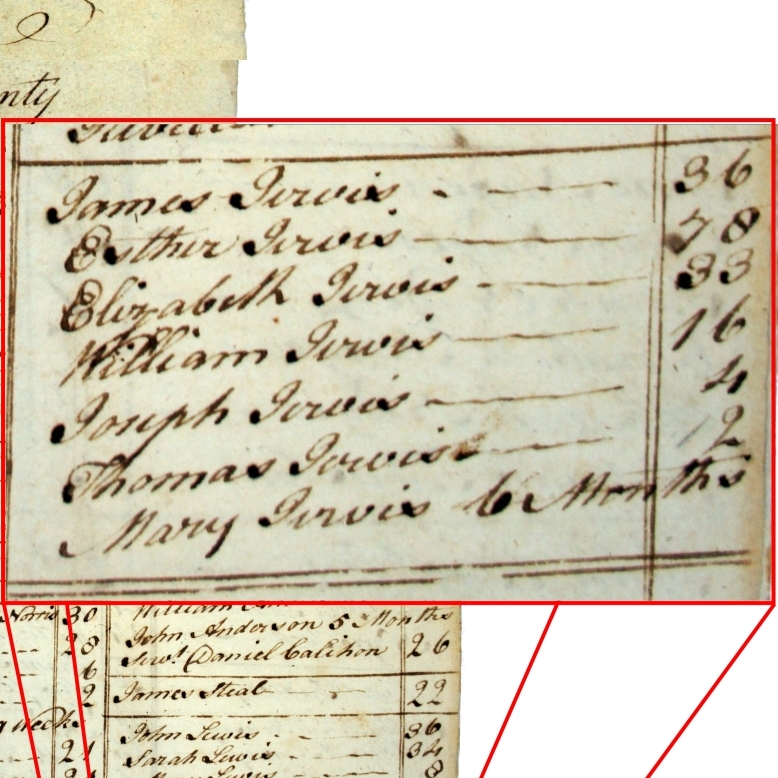 nty
James Jervis 36
Esther Jervis 78
Elizabeth Jervis 33
William Jervis 16
Joseph Jervis 4
Thomas Jervis 2
Mary Jervis 6 Months
Norris 30
28
6
2
Weeks
21
William
John Anderson 5 Months
Serv.t Daniel Calihon 26
James Steal 22
John Lewis 36
Sarah Lewis 34
Lewis 8